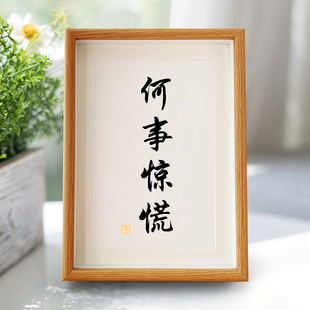 何事惊慌